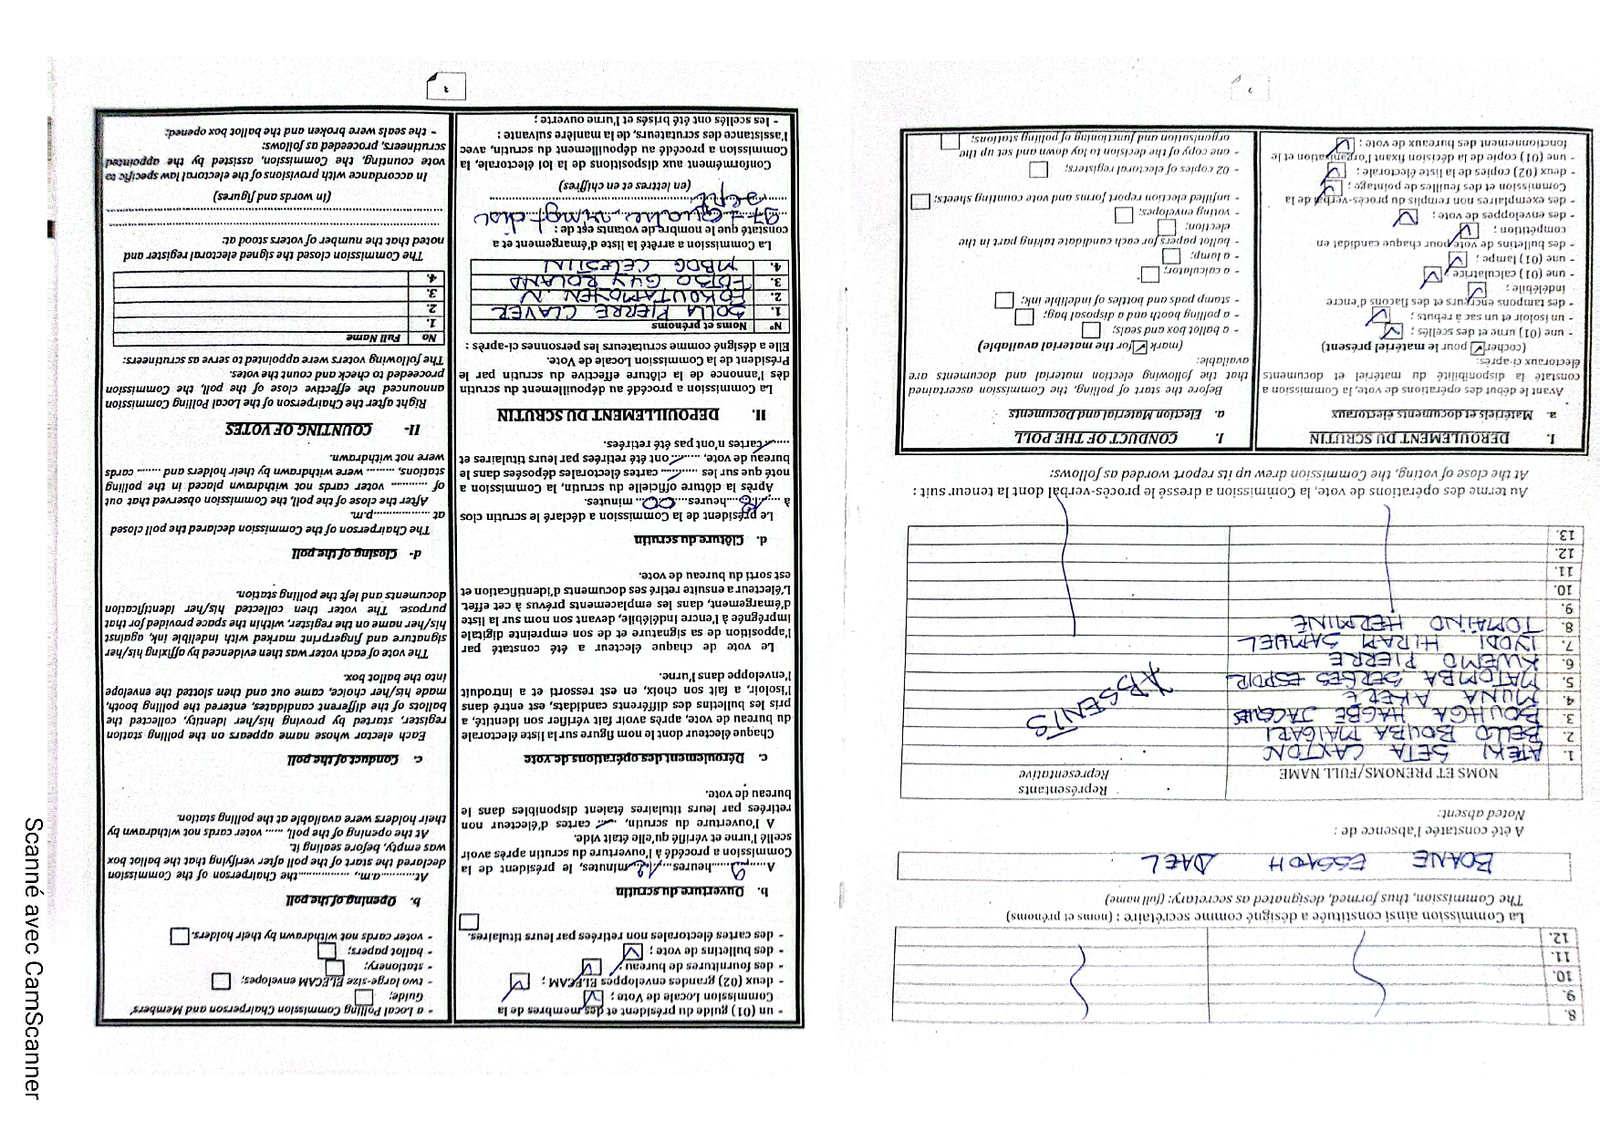 8.
9.
10.
11.
12.
La Commission ainsi constituée a désigné comme secrétaire : (noms et prénoms)
The Commission, thus formed, designated as secretary: (full name)
BOANE ESSIDH DAEL
A été constatée l'absence de :
Noted absent:
NOMS ET PRENOMS/FULL NAME
Représentants
Representative
1. ATEKI SETA CAXTON
2. BELLO BOUBA MAIGARI
3. BOUHGA HAGBE JACQUES
4. MUNA AKERE
5. MATOMBA SERGES ESPOIR
6. KWEMO PIERRE
7. IYODI HIRAM SAMUEL
8. TOMAÏNO HERMINE
9.
10.
11.
12.
13.
ABSENTS
Au terme des opérations de vote, la Commission a dressé le procès-verbal dont la teneur suit :
At the close of voting, the Commission drew up its report worded as follows:
I. DEROULEMENT DU SCRUTIN
a. Matériels et documents électoraux
Avant le début des opérations de vote, la Commission a
constaté la disponibilité du matériel et documents
électoraux ci-après:
(cocher ☑ pour le matériel présent)
- une (01) urne et des scellés ;
- un isoloir et un sac à rebuts ;
- des tampons encreurs et des flacons d'encre
indélébile ;
- une (01) calculatrice ;
- une (01) lampe ;
- des bulletins de vote pour chaque candidat en
compétition ;
- des enveloppes de vote ;
- des exemplaires non remplis du procès-verbal de la
Commission et des feuilles de pointage ;
- deux (02) copies de la liste électorale ;
- une (01) copie de la décision fixant l'organisation et le
fonctionnement des bureaux de vote ;
I. CONDUCT OF THE POLL
a. Election Material and Documents
Before the start of polling, the Commission ascertained
that the following election material and documents are
available:
(mark ☑ for the material available)
- a ballot box and seals;
- a polling booth and a disposal bag;
- stamp pads and bottles of indelible ink;
- a calculator;
- a lamp;
- ballot papers for each candidate taking part in the
election;
- voting envelopes;
- unfilled election report forms and vote counting sheets;
- 02 copies of electoral registers;
- one copy of the decision to lay down and set up the
organisation and functioning of polling stations;
- un (01) guide du président et des membres de la
Commission Locale de Vote ;
- deux (02) grandes enveloppes ELECAM ;
- des fournitures de bureau ;
- des bulletins de vote ;
- des cartes électorales non retirées par leurs titulaires.
b. Ouverture du scrutin
A ....9....heures...12...minutes, le président de la
Commission a procédé à l'ouverture du scrutin après avoir
scellé l'urne et vérifié qu'elle était vide.
A l'ouverture du scrutin, ...... cartes d'électeur non
retirées par leurs titulaires étaient disponibles dans le
bureau de vote.
c. Déroulement des opérations de vote
Chaque électeur dont le nom figure sur la liste électorale
du bureau de vote, après avoir fait vérifier son identité, a
pris les bulletins des différents candidats, est entré dans
l'isoloir, a fait son choix, en est ressorti et a introduit
l'enveloppe dans l'urne.
Le vote de chaque électeur a été constaté par
l'apposition de sa signature et de son empreinte digitale
imprégnée à l'encre indélébile, devant son nom sur la liste
d'émargement, dans les emplacements prévus à cet effet.
L'électeur a ensuite retiré ses documents d'identification et
est sorti du bureau de vote.
d. Clôture du scrutin
Le président de la Commission a déclaré le scrutin clos
à ....18....heures....00.... minutes.
Après la clôture officielle du scrutin, la Commission a
noté que sur les ........ cartes électorales déposées dans le
bureau de vote, ......ont été retirées par leurs titulaires et
......cartes n'ont pas été retirées.
II. DEPOUILLEMENT DU SCRUTIN
La Commission a procédé au dépouillement du scrutin
dès l'annonce de la clôture effective du scrutin par le
Président de la Commission Locale de Vote.
Elle a désigné comme scrutateurs les personnes ci-après :
N° Noms et prénoms
1. DOLLA PIERRE CLAVER
2. EDKOUTAMOYEN. N
3. EDIBO GUY ROLAND
4. MBOG CELESTIN
La Commission a arrêté la liste d'émargement et a
constaté que le nombre de votants est de :
97 = Quatre vingt dix
sept
(en lettres et en chiffres)
Conformément aux dispositions de la loi électorale, la
Commission a procédé au dépouillement du scrutin, avec
l'assistance des scrutateurs, de la manière suivante :
- les scellés ont été brisés et l'urne ouverte ;
- a Local Polling Commission Chairperson and Members'
Guide;
- two large-size ELECAM envelopes;
- stationery;
- ballot papers;
- voter cards not withdrawn by their holders.
b. Opening of the poll
At...........a.m., ..................the Chairperson of the Commission
declared the start of the poll after verifying that the ballot box
was empty, before sealing it.
At the opening of the poll, ...... voter cards not withdrawn by
their holders were available at the polling station.
c. Conduct of the poll
Each elector whose name appears on the polling station
register, started by proving his/her identity, collected the
ballots of the different candidates, entered the polling booth,
made his/her choice, came out and then slotted the envelope
into the ballot box.
The vote of each voter was then evidenced by affixing his/her
signature and fingerprint marked with indelible ink, against
his/her name on the register, within the space provided for that
purpose. The voter then collected his/her identification
documents and left the polling station.
d- Closing of the poll
The Chairperson of the Commission declared the poll closed
at ..................p.m.
After the close of the poll, the Commission observed that out
of ........... voter cards not withdrawn placed in the polling
stations, ......... were withdrawn by their holders and ....... cards
were not withdrawn.
II- COUNTING OF VOTES
Right after the Chairperson of the Local Polling Commission
announced the effective close of the poll, the Commission
proceeded to check and count the votes.
The following voters were appointed to serve as scrutineers:
No Full Name
1.
2.
3.
4.
The Commission closed the signed electoral register and
noted that the number of voters stood at:
(In words and figures)
In accordance with provisions of the electoral law specific to
vote counting, the Commission, assisted by the appointed
scrutineers, proceeded as follows:
- the seals were broken and the ballot box opened;
3
Scanné avec CamScanner